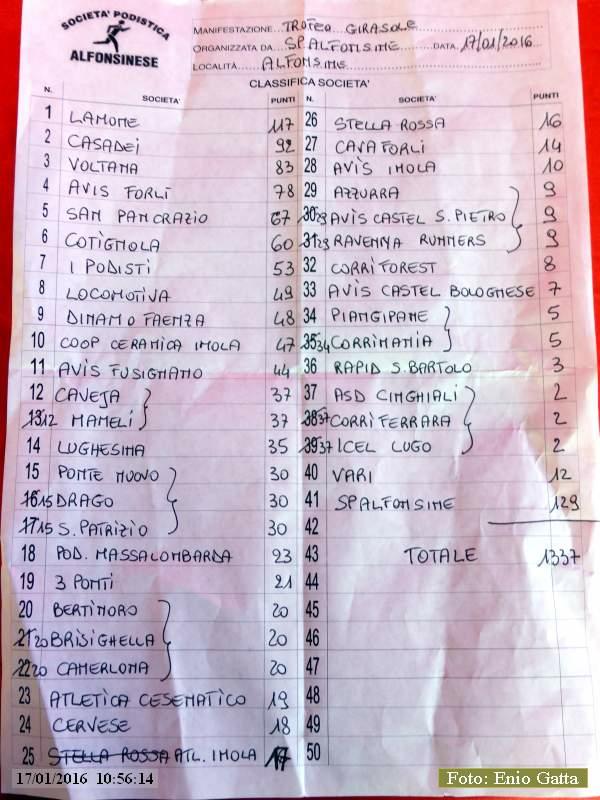 SOCIETA' PODISTICA
ALFONSINESE
MANIFESTAZIONE... TROFEO GIRASOLE
ORGANIZZATA DA... SP.ALFONSINE...... DATA. 17/01/2016
LOCALITÀ...... ALFONSINE
CLASSIFICA SOCIETA'
N. SOCIETA' PUNTI
1 LAMONE 117
2 CASADEI 92
3 VOLTANA 83
4 AVIS FORLI 78
5 SAN PANCRAZIO 67
6 COTIGNOLA 60
7 I PODISTI 53
8 LOCOMOTIVA 49
9 DINAMO FAENZA 48
10 COOP CERAMICA IMOLA 47
11 AVIS FUSIGNANO 44
12 CAVEJA 37
13 12 MAMELI 37
14 LUGHESINA 35
15 PONTE NUOVO 30
16 15 DRAGO 30
17 15 S. PATRIZIO 30
18 POD. MASSALOMBARDA 23
19 3 PONTI 21
20 BERTINORO 20
21 20 BRISIGHELLA 20
22 20 CAMERLONA 20
23 ATLETICA CESENATICO 19
24 CERVESE 18
25 STELLA ROSSA ATL. IMOLA 17
N. SOCIETA' PUNTI
26 STELLA ROSSA 16
27 CAVA FORLI 14
28 AVIS IMOLA 10
29 AZZURRA 9
30 29 AVIS CASTEL S. PIETRO 9
31 29 RAVENNA RUNNERS 9
32 CORRIFOREST 8
33 AVIS CASTEL BOLOGNESE 7
34 PIANGIPANE 5
35 34 CORRIMANIA 5
36 RAPID S. BARTOLO 3
37 ASD CINGHIALI 2
38 37 CORRIFERRARA 2
39 37 ICEL LUGO 2
40 VARI 12
41 SP ALFONSINE 129
42
43 TOTALE 1337
44
45
46
47
48
49
50
17/01/2016 10:56:14
Foto: Enio Gatta